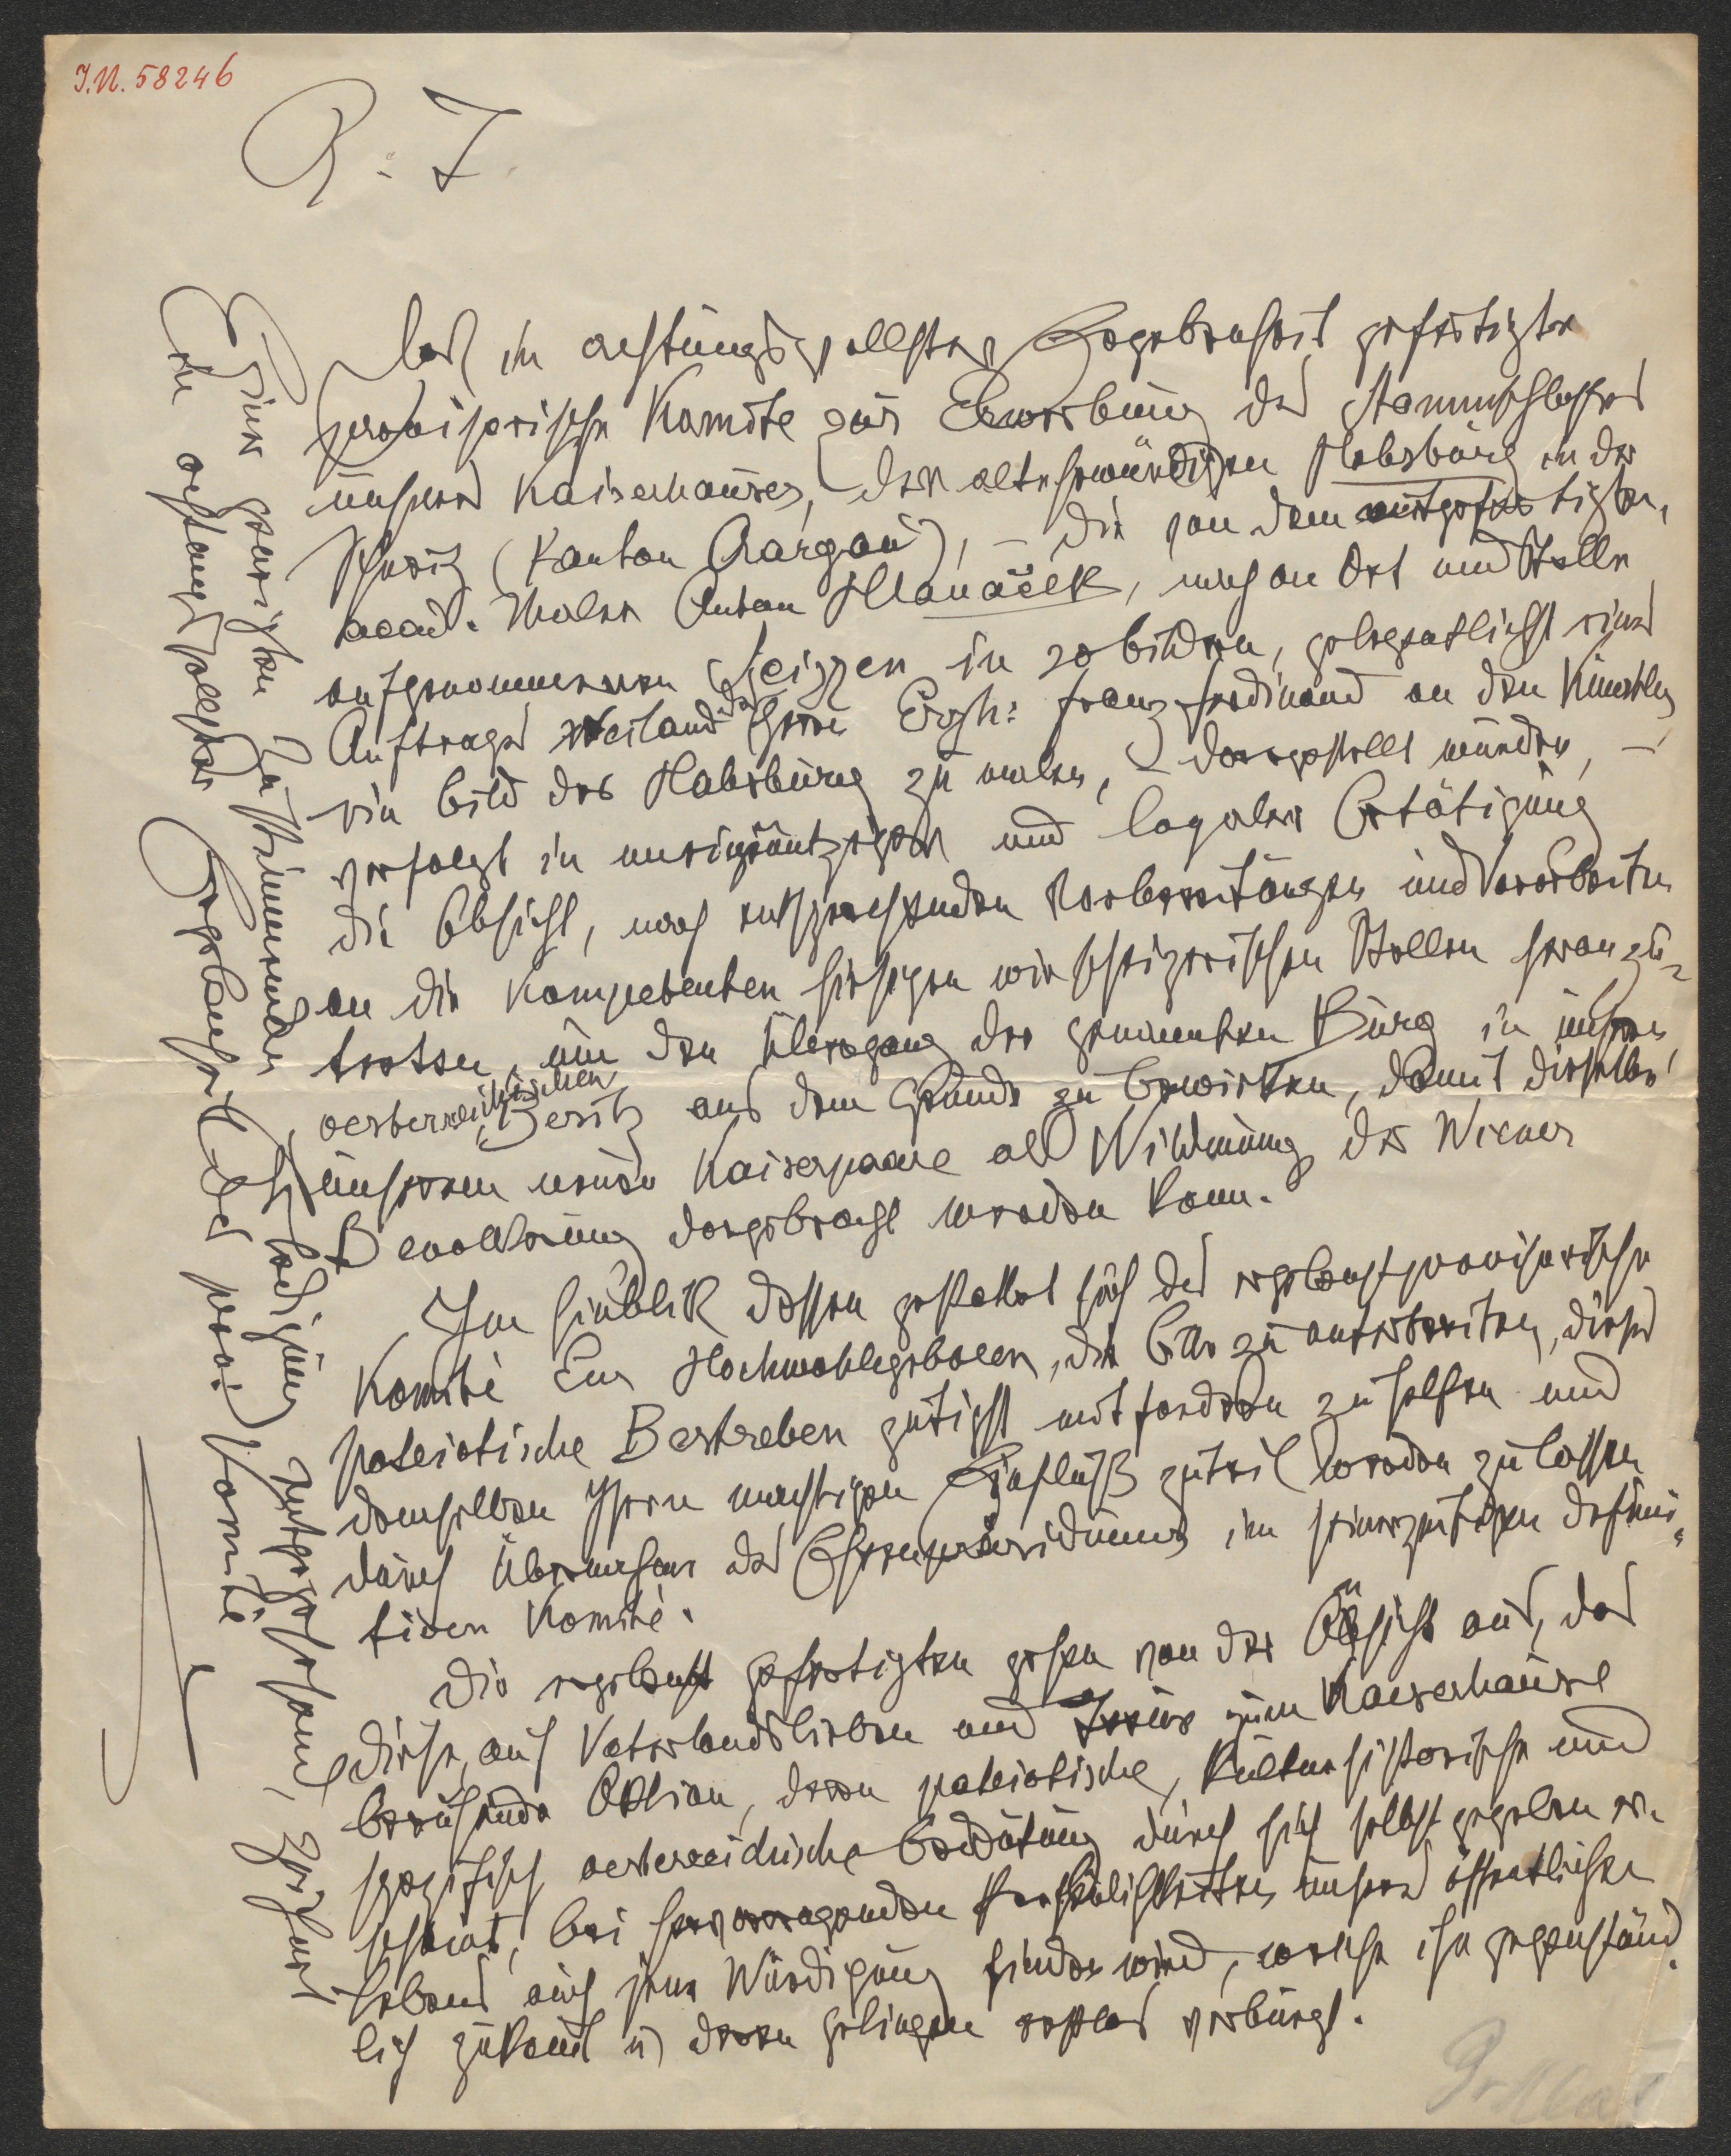 J.N. 58246
P. T.
Das in achtungsvollster Ergebenheit gefertigte
provisorische Komite zur Erwerbung des Stammschlosses
unseres Kaiserhauses, der altehrwürdigen Habsburg in der
Schweiz (Kanton Aargau), – die von dem mitgefertigten,
acad. Maler Anton Hlaváček, nach an Ort und Stelle
aufgenommenen Skizzen in 20 Bildern, gelegentlich eines
Auftrages weiland des Herrn Erzh: Franz Ferdinand an den Künstler
ein Bild der Habsburg zu malen, – dargestellt wurden, –
verfolgt in uneigennütziger und loyaler Betätigung
die Absicht, nach entsprechenden Vorbereitungen und Vorarbeiten
an die kompetenten hiesigen wie schweizerischen Stellen heranzu-
tretten, um den Übergang der genannten Burg in unseren
oesterreichischen Besitz aus dem Grunde zu bewirken, damit dieselbe
unserem neuen Kaiserpaare als Widmung der Wiener
Bevölkerung dargebracht werden kann.
Im Hinblik dessen gestattet sich das ergebenst provisorische
Komité Eur Hochwohlgeboren, die Bitte zu unterbreiten, dieses
patriotische Bestreben gütigst mitfördern zu helfen und
demselben Ihren mächtigen Einfluß zuteil werden zu lassen
durch Übernahme des Ehrenpräsidiums im seinerzeitigen defini-
tiven Komité.
Die ergebenst gefertigten gehen von der Absicht aus, das
diese, auf Vaterlandsliebe und Treue zum Kaiserhause
beruhende Aktion, deren patriotische, kulturhistorische und
spezifisch oesterreichische Bedeutung durch sich selbst gegeben er-
scheint, bei hervorragenden Persönlichkeiten unseres öffentlichen
Lebens auch jene Würdigung finden wird, welche ihr gegenständ-
lich zukomt u deren Gelingen vollends verbürgt.
Einer geneigten zustimmenden Erledigung entgegensehend, zeichnet
in achtungsvollster Ergebenheit das prov: Komité